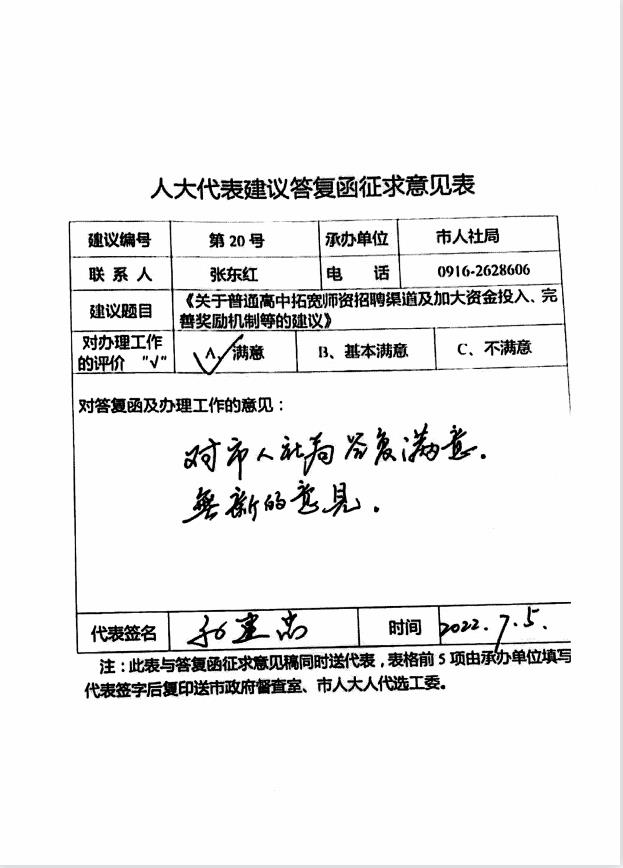 人大代表建议答复函征求意见表
建议编号 第 20 号 承办单位 市人社局
联系人 张东红 电话 0916-2628606
建议题目 《关于普通高中拓宽师资招聘渠道及加大资金投入、完
善奖励机制等的建议》
对办理工作
的评价 "√" A、满意 B、基本满意 C、不满意
对答复函及办理工作的意见：
对市人社局答复满意.
无新的意见.
代表签名 时间 2022.7.5.
注：此表与答复函征求意见稿同时送代表，表格前 5 项由承办单位填写
代表签字后复印送市政府督查室、市人大人代选工委。